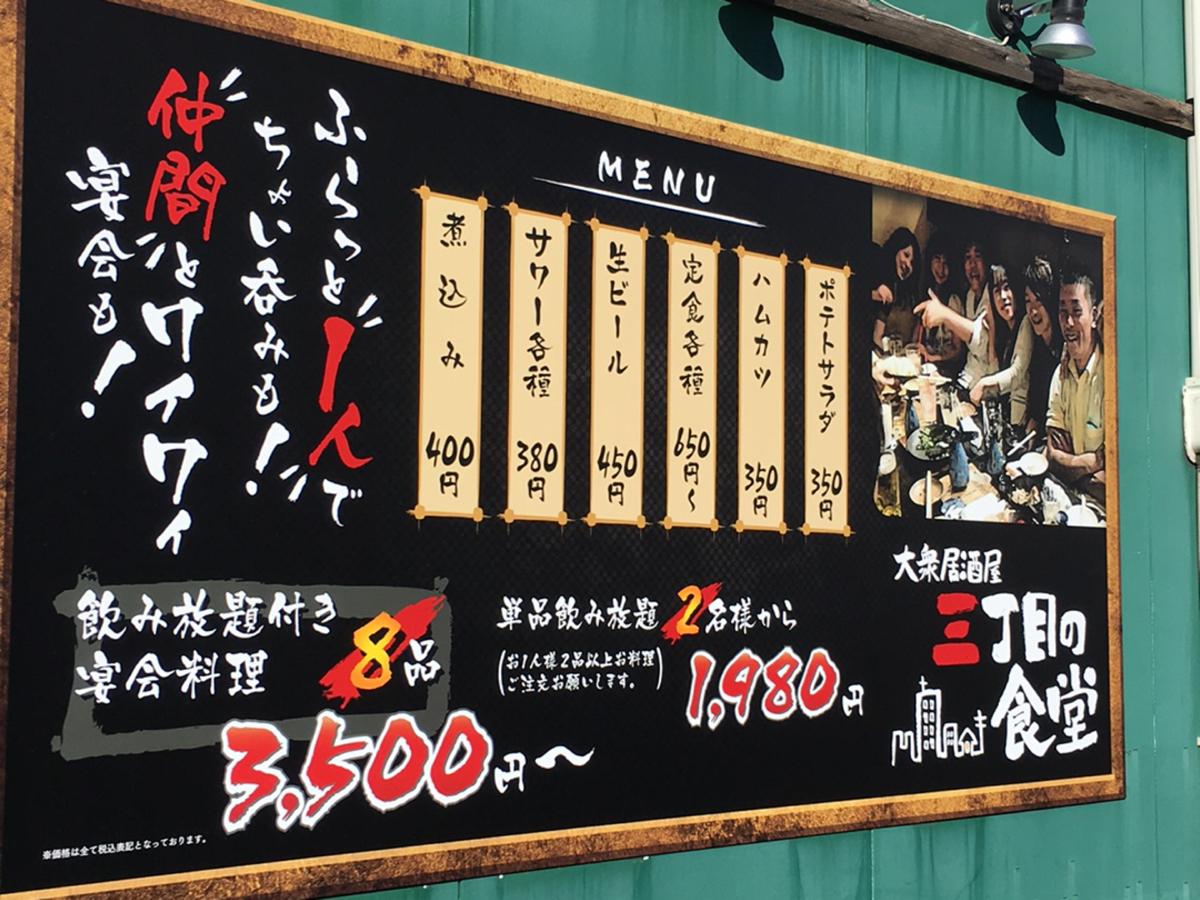 ふらっと1人で
ちょい呑みも!
仲間とワイワイ
宴会も!
MENU
煮込み 400円
サワー各種 380円
生ビール 450円
定食各種 650円~
ハムカツ 350円
ポテトサラダ 350円
飲み放題付き
宴会料理 8品
3,500円~
単品飲み放題 2名様から
(お1人様2品以上お料理
ご注文お願いします。)
1,980円
大衆居酒屋
三丁目の
食堂
※価格は全て税込表記となっております。